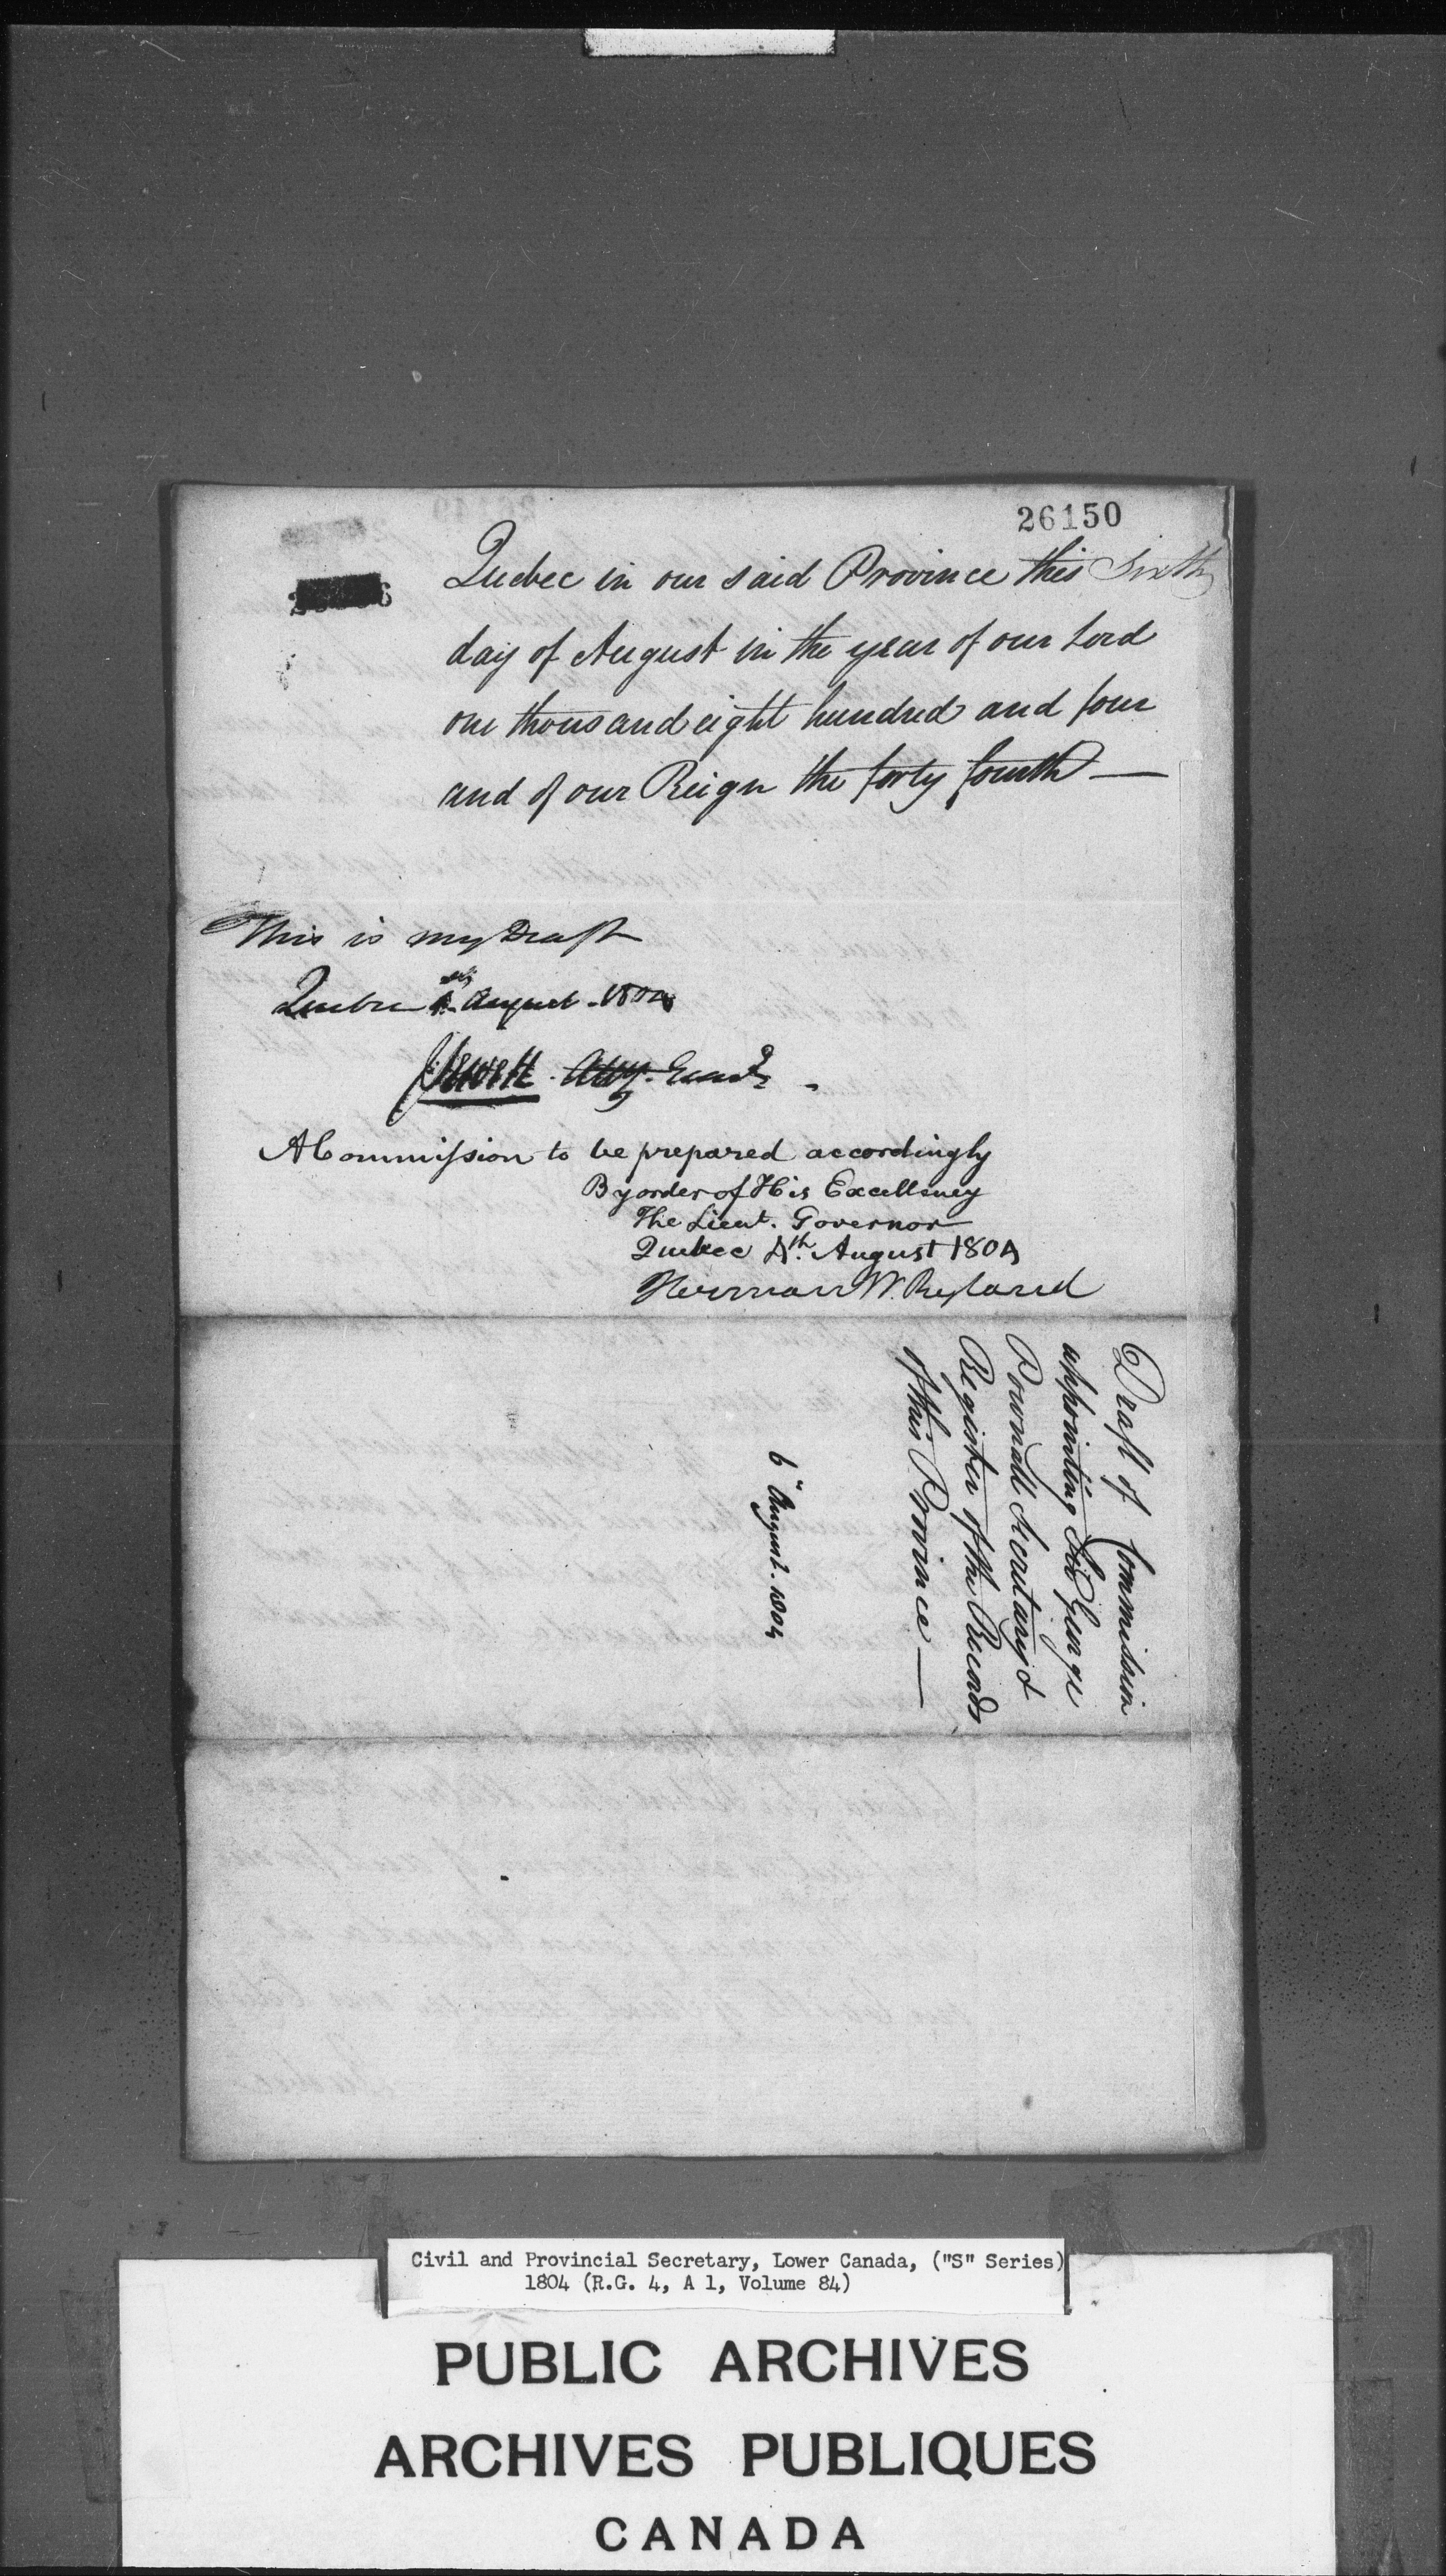 26150
Quebec in our said Province this Sixth
day of August in the year of our Lord
one thousand eight hundred and four
and of our Reign the forty fourth —
This is my Draft
Quebec August 1804
J Sewell Atty. Genl.
A Commission to be prepared accordingly
By order of His Excellency
The Lieut. Governor
Quebec 4th. August 1804
Herman W. Ryland
Draft of Commission
appointing Sir George
Pownall Secretary &
Register of the Records
of this Province —
6th August. 1804
Civil and Provincial Secretary, Lower Canada, ("S" Series)
1804 (R.G. 4, A 1, Volume 84)
PUBLIC ARCHIVES
ARCHIVES PUBLIQUES
CANADA